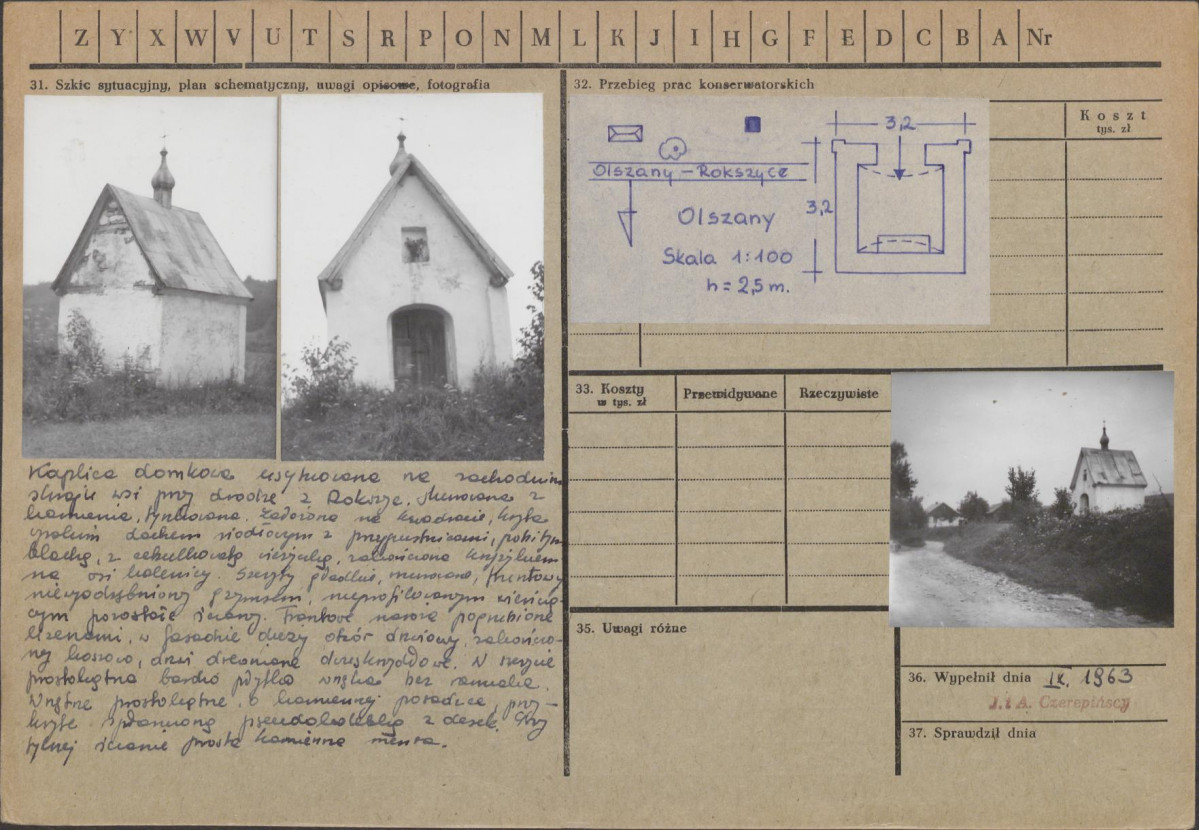 Z Y X W V U T S R P O N M L K J I H G F E D C B A Nr
31. Szkic sytuacyjny, plan schematyczny, uwagi opisowe, fotografia
Kaplica domkowa usytuowana na zachodnim
skraju wsi przy drodze z Rokszyc. Murowana z
kamienia, tynkowana. Założona na kwadracie, kryta
dachem siodłowym z przypustnicami, pobitym
blachą, z cebulkowatą wieżyczką, zakończoną krzyżykiem
na osi kalenicy. Szczyty gładkie, murowane, frontowy
niewyodrębniony gzymsem, nieprofilowanym wieńczą-
cym pozostałe ściany. Frontowe naroża pogrubione
lizenami, w fasadzie duży otwór drzwiowy, zakończo-
ny koszowo, drzwi drewniane dwuskrzydłowe. W szczycie
prostokątna bardzo płytka wnęka bez
Wnętrze prostokątne, o kamiennej posadzce, przy-
kryte spłaszczoną pseudokolebką z desek. Przy
tylnej ścianie prosta kamienna mensa.
32. Przebieg prac konserwatorskich
Koszt
tys. zł
Olszany - Rokszyce
Olszany
Skala 1:100
h = 2,5 m.
3,2
3,2
33. Koszty
w tys. zł
Przewidywane
Rzeczywiste
35. Uwagi różne
36. Wypełnił dnia IX. 1963
J. i A. Czerepińscy
37. Sprawdził dnia